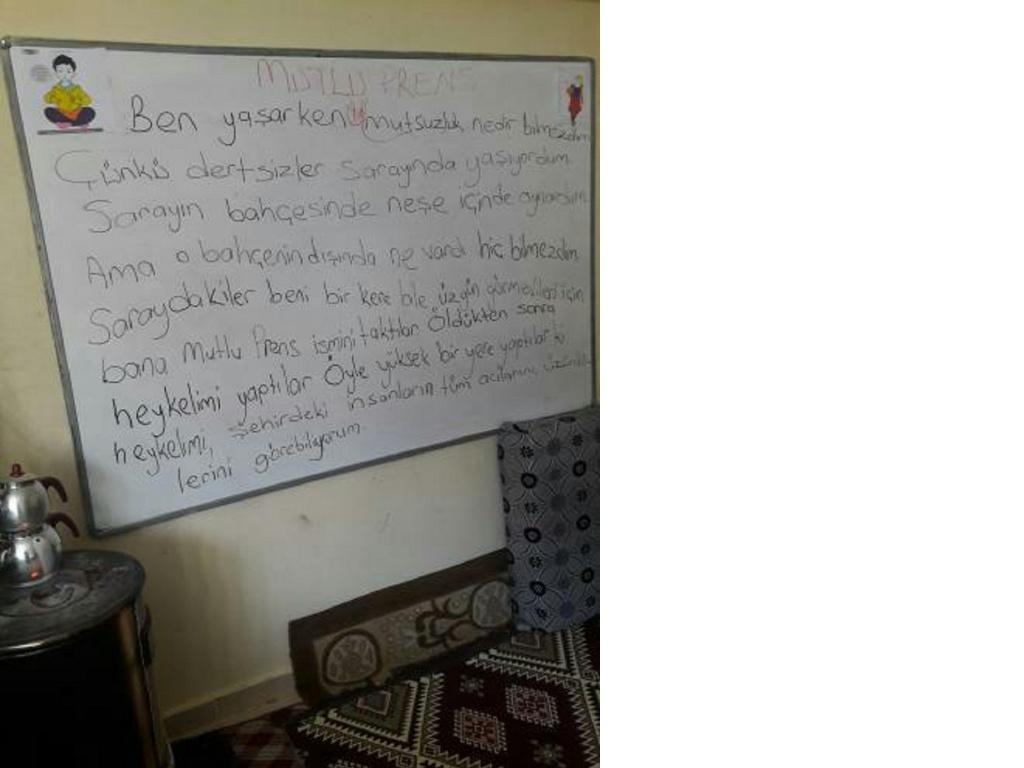 MUTLU PRENS
Ben yaşarken mutsuzluk nedir bilmezdim
Çünkü dertsizler Sarayında yaşıyordum
Sarayın bahçesinde neşe içinde oynardım
Ama o bahçenin dışında ne vardı hiç bilmezdim
Saraydakiler beni bir kere bile üzgün görmedikleri için
bana Mutlu Prens ismini taktılar Öldükten sonra
heykelimi yaptılar Öyle yüksek bir yere yaptılar ki
heykelimi, şehirdeki insanların tüm acılarını, üzüntü
lerini görebiliyorum.